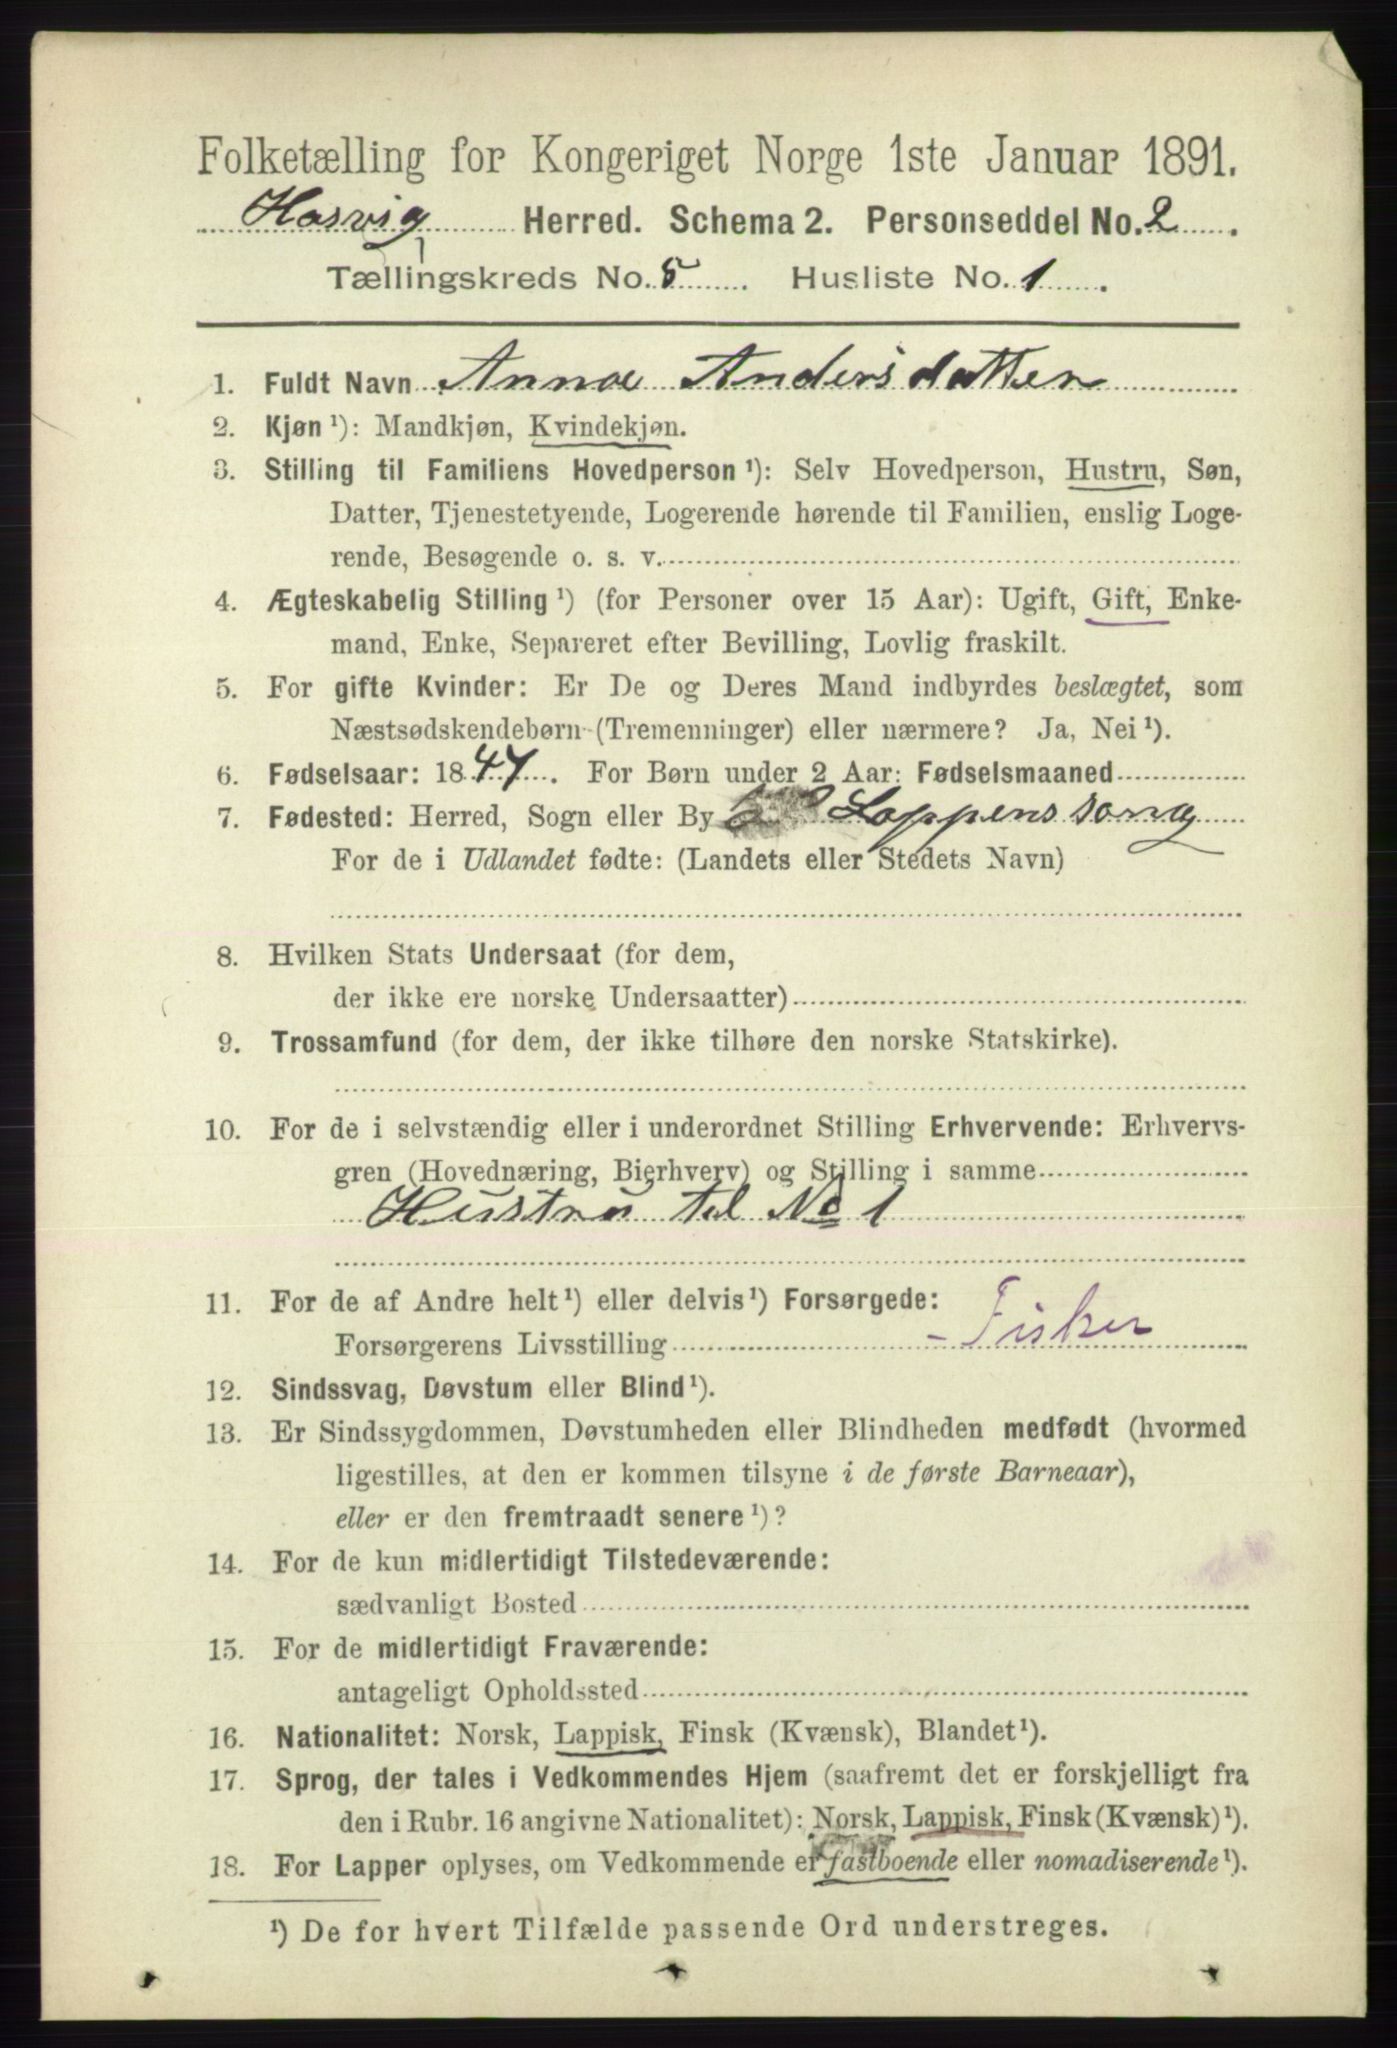 Folketælling for Kongeriget Norge 1ste Januar 1891.
Hasvig Herred. Schema 2. Personseddel No. 2.
Tællingskreds No. 5. Husliste No. 1.
1. Fuldt Navn Anna Andersdatter
2. Kjøn ¹): Mandkjøn, Kvindekjøn.
3. Stilling til Familiens Hovedperson ¹): Selv Hovedperson, Hustru, Søn,
Datter, Tjenestetyende, Logerende hørende til Familien, enslig Loge-
rende, Besøgende o. s. v.
4. Ægteskabelig Stilling ¹) (for Personer over 15 Aar): Ugift, Gift, Enke-
mand, Enke, Separeret efter Bevilling, Lovlig fraskilt.
5. For gifte Kvinder: Er De og Deres Mand indbyrdes beslægtet, som
Næstsødskendebørn (Tremenninger) eller nærmere? Ja, Nei ¹).
6. Fødselsaar: 1847. For Børn under 2 Aar: Fødselsmaaned
7. Fødested: Herred, Sogn eller By Loppens song
For de i Udlandet fødte: (Landets eller Stedets Navn)
8. Hvilken Stats Undersaat (for dem,
der ikke ere norske Undersaatter)
9. Trossamfund (for dem, der ikke tilhøre den norske Statskirke).
10. For de i selvstændig eller i underordnet Stilling Erhvervende: Erhvervs-
gren (Hovednæring, Bierhverv) og Stilling i samme
Hustru til No 1
11. For de af Andre helt ¹) eller delvis ¹) Forsørgede:
Forsørgerens Livsstilling - Fisker
12. Sindssvag, Døvstum eller Blind ¹).
13. Er Sindssygdommen, Døvstumheden eller Blindheden medfødt (hvormed
ligestilles, at den er kommen tilsyne i de første Barneaar),
eller er den fremtraadt senere ¹)?
14. For de kun midlertidigt Tilstedeværende:
sædvanligt Bosted
15. For de midlertidigt Fraværende:
antageligt Opholdssted
16. Nationalitet: Norsk, Lappisk, Finsk (Kvænsk), Blandet ¹).
17. Sprog, der tales i Vedkommendes Hjem (saafremt det er forskjelligt fra
den i Rubr. 16 angivne Nationalitet): Norsk, Lappisk, Finsk (Kvænsk) ¹).
18. For Lapper oplyses, om Vedkommende er fastboende eller nomadiserende ¹).
¹) De for hvert Tilfælde passende Ord understreges.